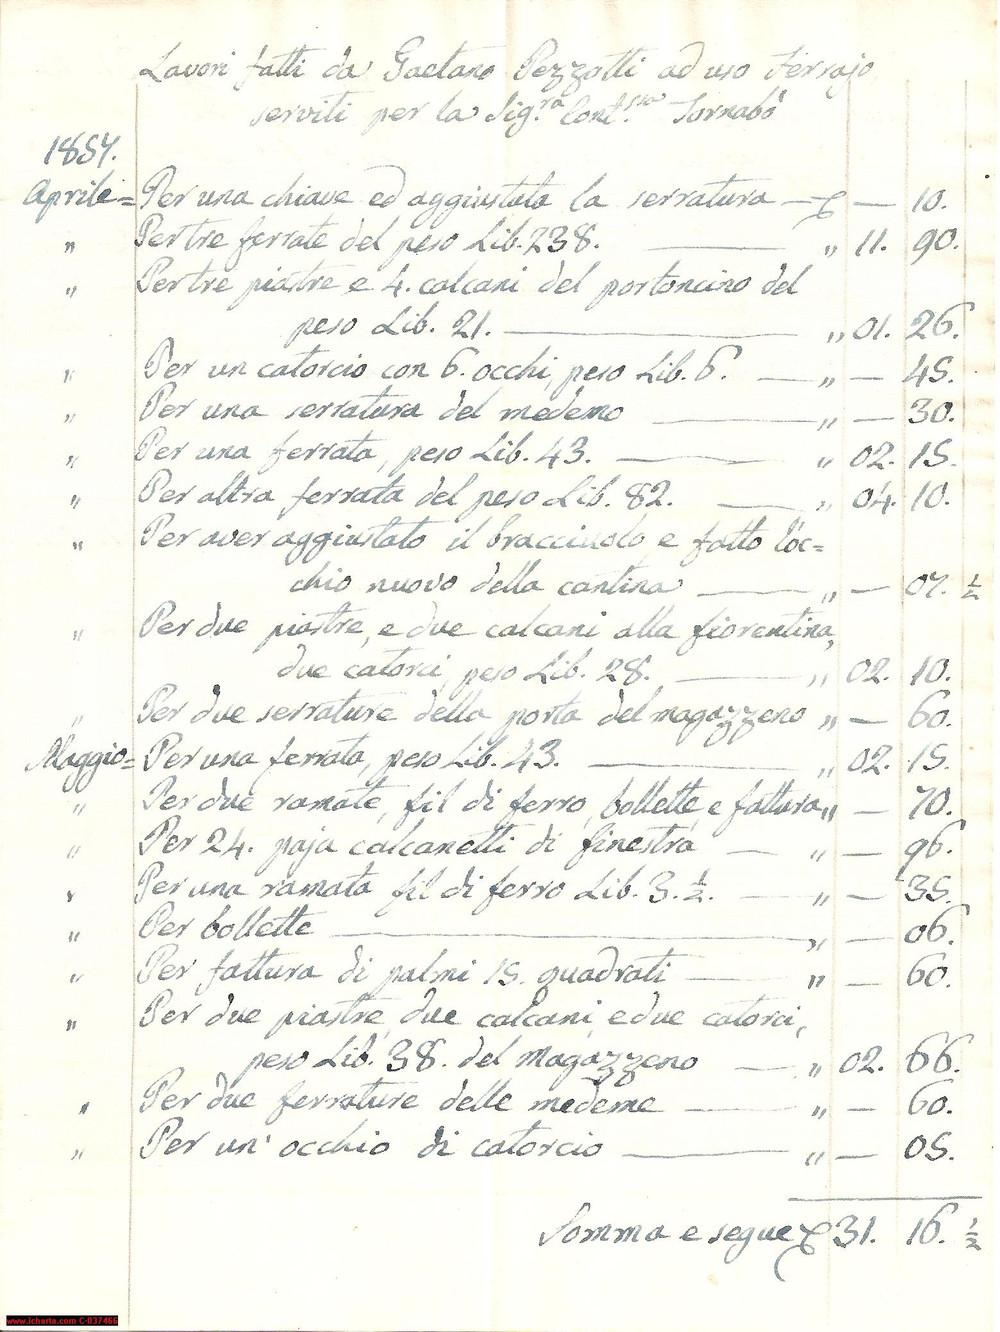 Lavori fatti da Gaetano Pezzotti ad uso Ferrajo
serviti per la Sig.ra Cont.ssa Tornabò
1857.
Aprile = Per una chiave ed aggiustata la serratura — £ — 10.
" Per tre ferrate del peso Lib. 238. — " 11. 90.
" Per tre piastre e 4. calcani del portoncino del
peso Lib. 21. — " 01. 26.
" Per un catorcio con 6. occhi, peso Lib. 6. — " — 45.
" Per una serratura del medemo — " — 30.
" Per una ferrata, peso Lib. 43. — " 02. 15.
" Per altra ferrata del peso Lib. 82. — " 04. 10.
" Per aver aggiustato il bracciuolo, e fatto l'oc=
chio nuovo della cantina — " — 07. ½
" Per due piastre, e due calcani alla fiorentina,
due catorci, peso Lib. 28. — " 02. 10.
" Per due serrature della porta del magazzeno " — 60.
Maggio = Per una ferrata, peso Lib. 43. — " 02. 15.
" Per due ramate, fil di ferro, bollette, e fattura " — 70.
" Per 24. paja calcanetti di finestra — " — 96.
" Per una ramata fil di ferro Lib. 3. ½. — " — 35.
" Per bollette — " — 06.
" Per fattura di palmi 15. quadrati — " — 60.
" Per due piastre, due calcani, e due catorci,
peso Lib. 38. del magazzeno — " 02. 66.
" Per due ferrature delle medeme — " — 60.
" Per un' occhio di catorcio — " — 05.
Somma e segue £ 31. 16. ½
www.icharta.com C-037466